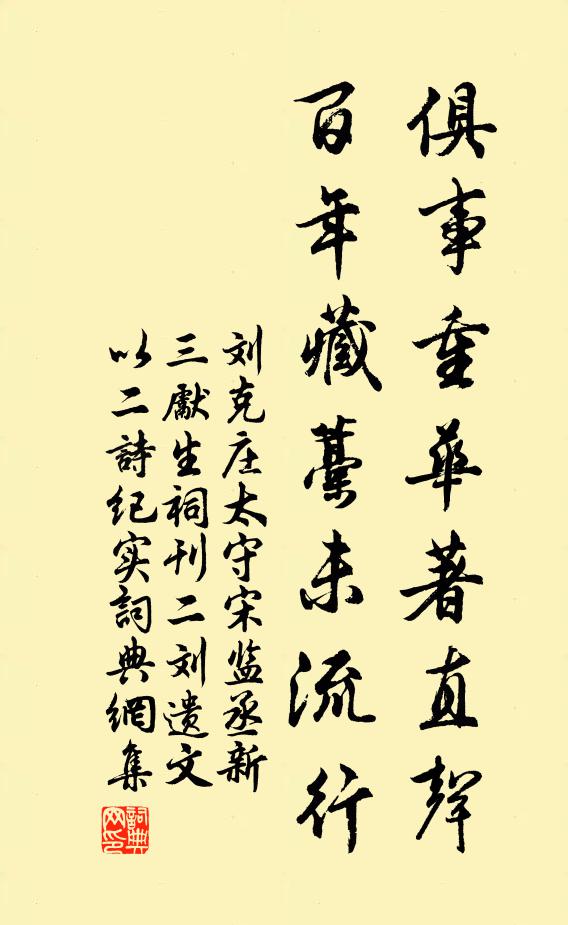 俱事重華著直聲
百年藏藁未流行
刘克庄太守宋监丞新
三獻生祠刊二刘遗文
以二詩纪实詞典網集
詞典网印